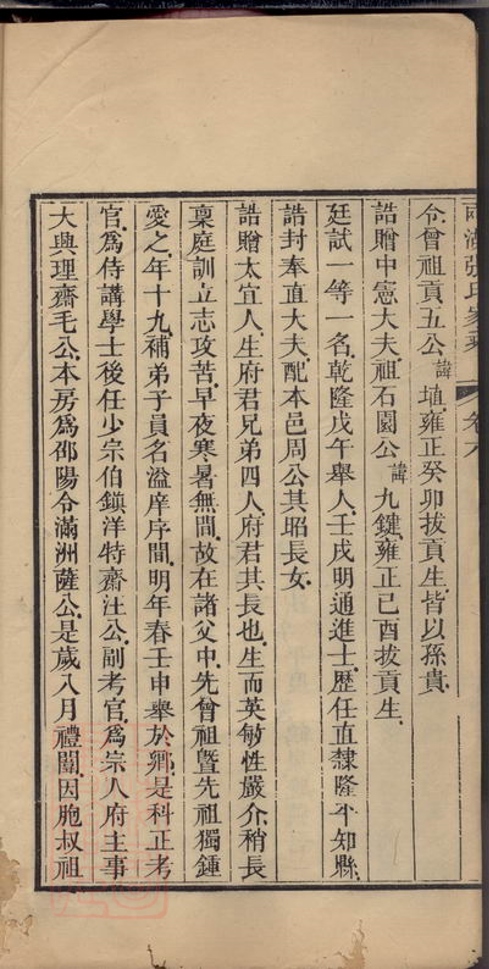 兩湖張氏家乘 卷六
令曾祖貢五公諱埴雍正癸卯拔貢生皆以孫貴
誥贈中憲大夫祖石園公諱九鍵雍正己酉拔貢生
廷試一等一名乾隆戊午舉人壬戌明通進士歷任直隸隆平知縣
誥封奉直大夫配本邑周公其昭長女
誥贈太宜人生府君兄弟四人府君其長也生而英敏性嚴介稍長
稟庭訓立志攻苦早夜寒暑無間故在諸父中先曾祖曁先祖獨鍾
愛之年十九補弟子員名溢庠序間明年春壬申舉於鄉是科正考
官爲侍講學士後任少宗伯鎭洋特齋汪公副考官爲宗人府主事
大興理齋毛公本房爲邵陽令滿洲薩公是歲八月禮闈因胞叔祖